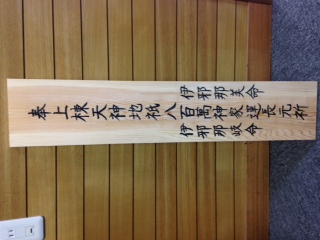 伊邪那美命
奉上棟天神地祇八百萬神家運長元祈
伊邪那岐命